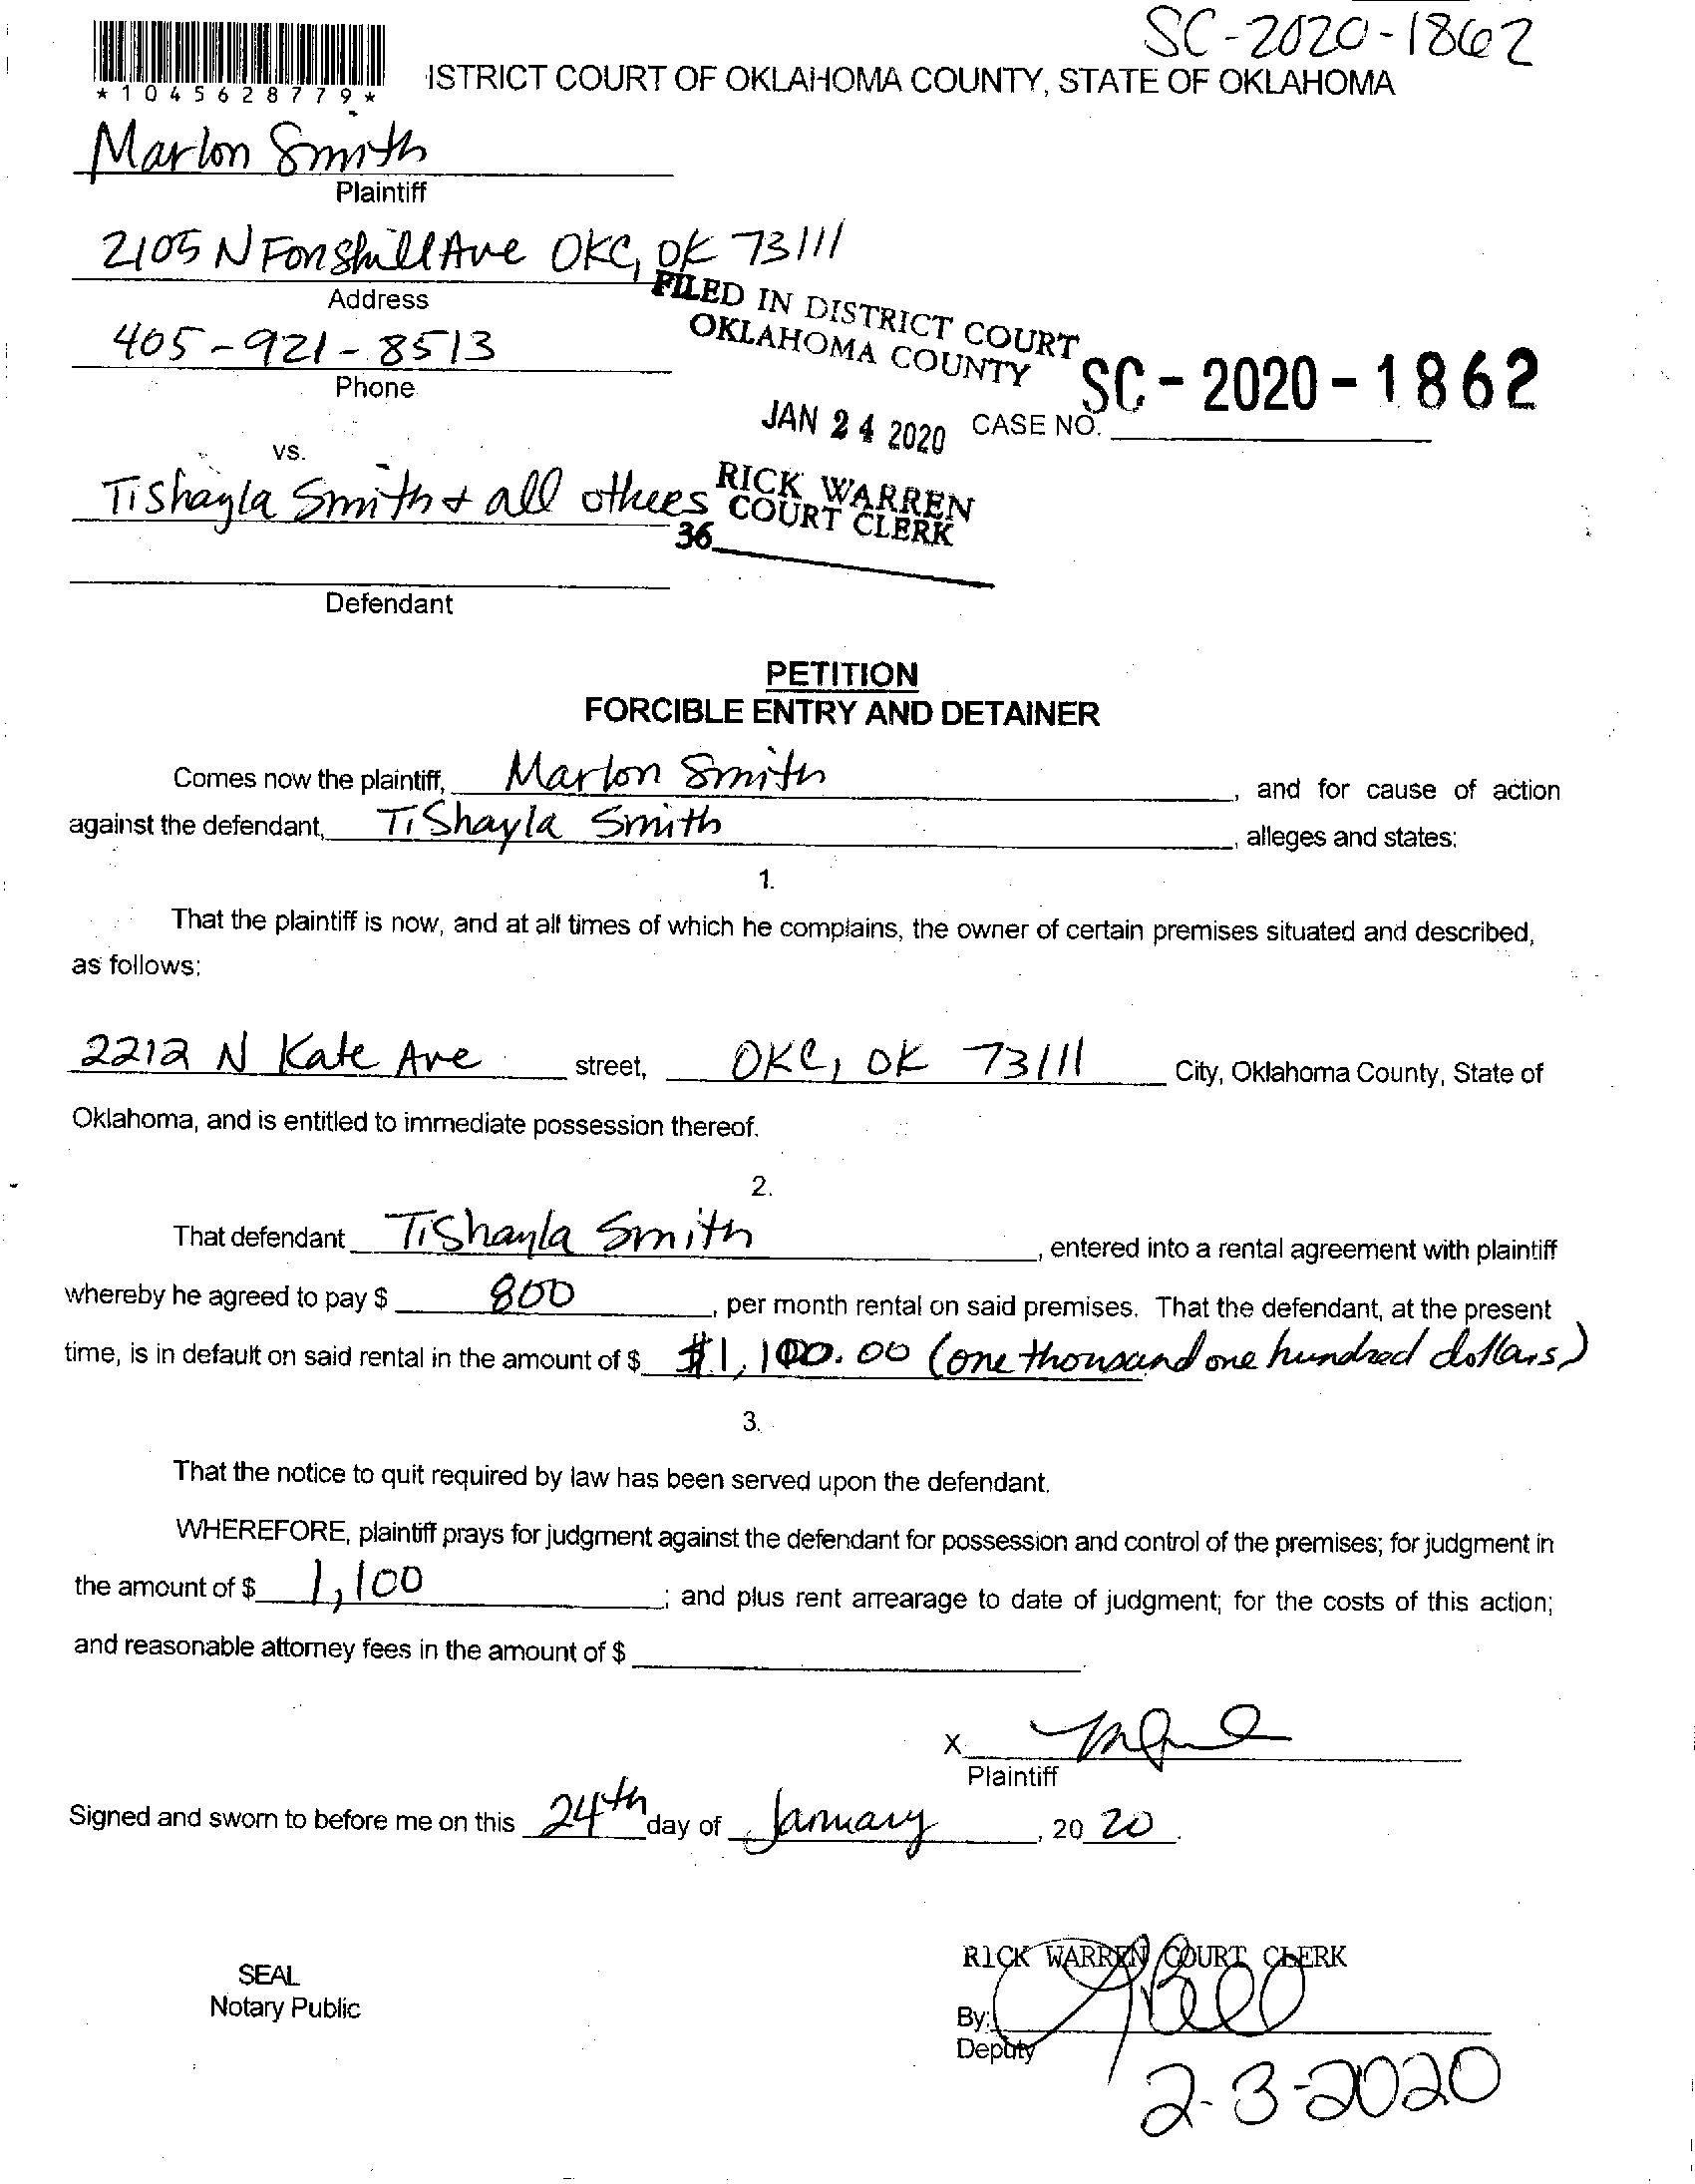 SC-2020-1862
*1045628779*
ISTRICT COURT OF OKLAHOMA COUNTY, STATE OF OKLAHOMA
Marlon Smith
Plaintiff
2105 N Fonshill Ave OKC, OK 73111
Address
FILED IN DISTRICT COURT
OKLAHOMA COUNTY
405-921-8513
Phone
SC-2020-1862
JAN 24 2020
CASE NO.
vs.
TiShayla Smith + all others
RICK WARREN
COURT CLERK
36
Defendant
PETITION
FORCIBLE ENTRY AND DETAINER
Comes now the plaintiff, Marlon Smith, and for cause of action
against the defendant, TiShayla Smith, alleges and states:
1.
That the plaintiff is now, and at all times of which he complains, the owner of certain premises situated and described,
as follows:
2212 N Kate Ave street, OKC, OK 73111 City, Oklahoma County, State of
Oklahoma, and is entitled to immediate possession thereof.
2.
That defendant TiShayla Smith, entered into a rental agreement with plaintiff
whereby he agreed to pay $ 800, per month rental on said premises. That the defendant, at the present
time, is in default on said rental in the amount of $ $1,100.00 (one thousand one hundred dollars)
3.
That the notice to quit required by law has been served upon the defendant.
WHEREFORE, plaintiff prays for judgment against the defendant for possession and control of the premises; for judgment in
the amount of $ 1,100; and plus rent arrearage to date of judgment; for the costs of this action;
and reasonable attorney fees in the amount of $
X
Plaintiff
Signed and sworn to before me on this 24th day of January, 20 20.
RICK WARREN COURT CLERK
SEAL
Notary Public
By:
Deputy
2-3-2020